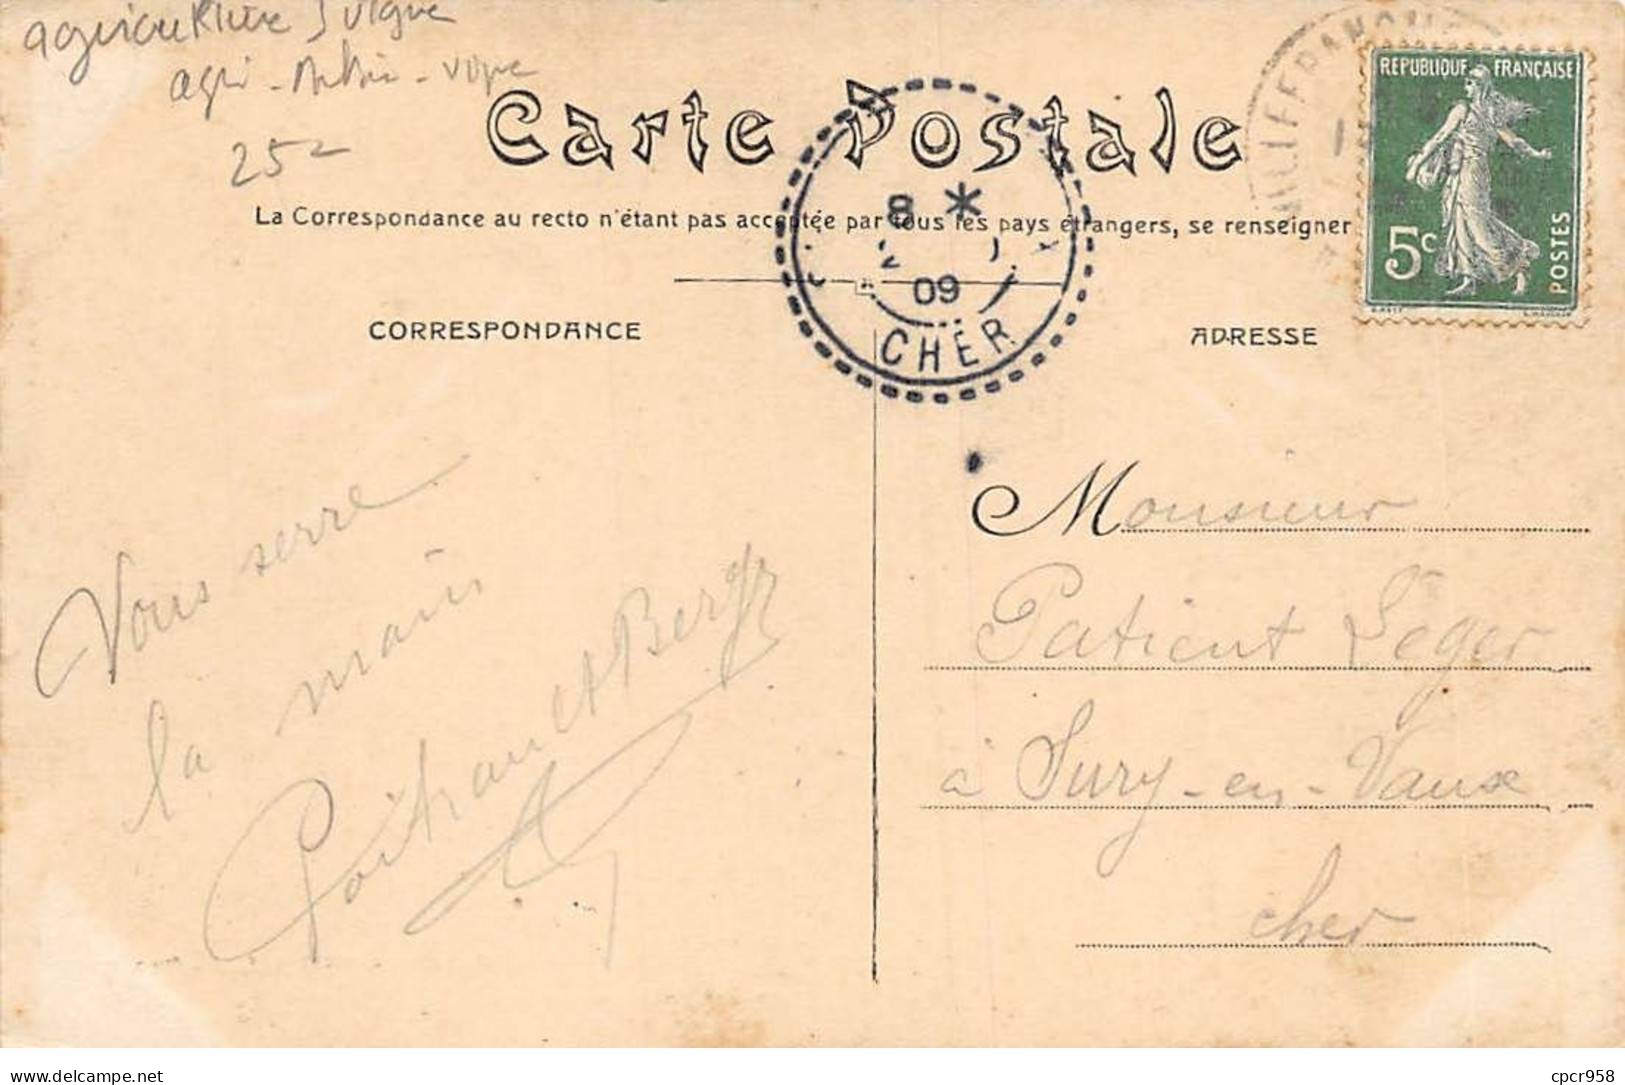 agriculture Vigne
25
Carte Postale
La Correspondance au recto n'étant pas acceptée par tous les pays étrangers, se renseigner
CORRESPONDANCE
ADRESSE
REPUBLIQUE FRANÇAISE
5c
POSTES
VILLEFRANCHE
8 *
09
CHER
Vous serre
la main
Monsieur
Patient Léger
à Sury-en-Vaux
Cher
delcampe.net
cpcr958